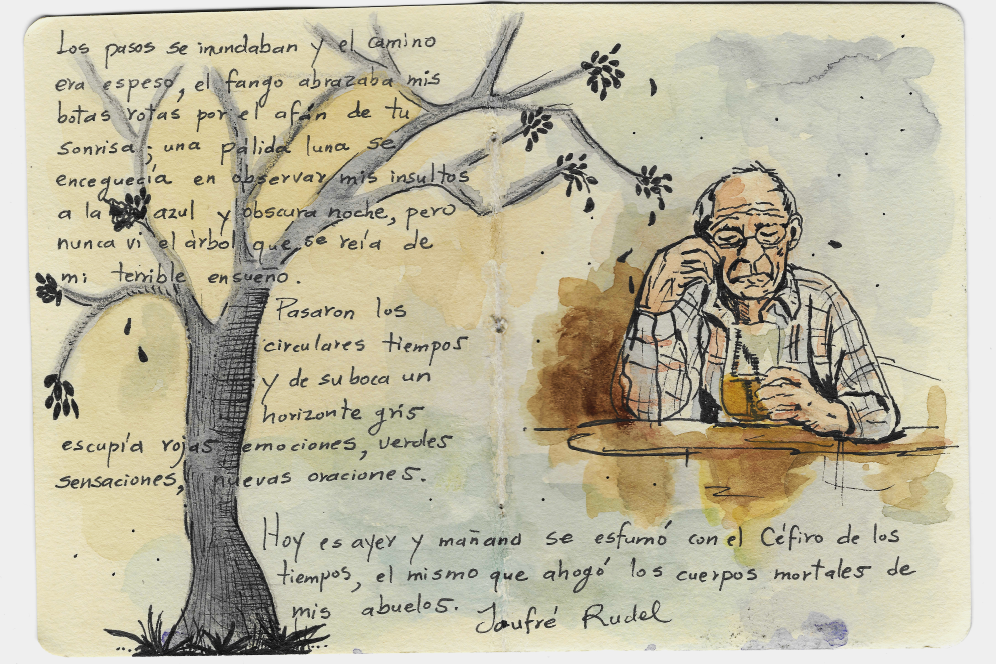 Los pasos se inundaban y el camino
era espeso, el fango abrazaba mis
botas rotas por el afán de tu
sonrisa; una pálida luna se
enceguecía en observar mis insultos
a la azul y obscura noche, pero
nunca vi el árbol que se reía de
mi terrible ensueño.
Pasaron los
circulares tiempos
y de su boca un
horizonte gris
escupía rojas emociones, verdes
sensaciones, nuevas oraciones.
Hoy es ayer y mañana se esfumó con el Céfiro de los
tiempos, el mismo que ahogó los cuerpos mortales de
mis abuelos.
Jaufré Rudel